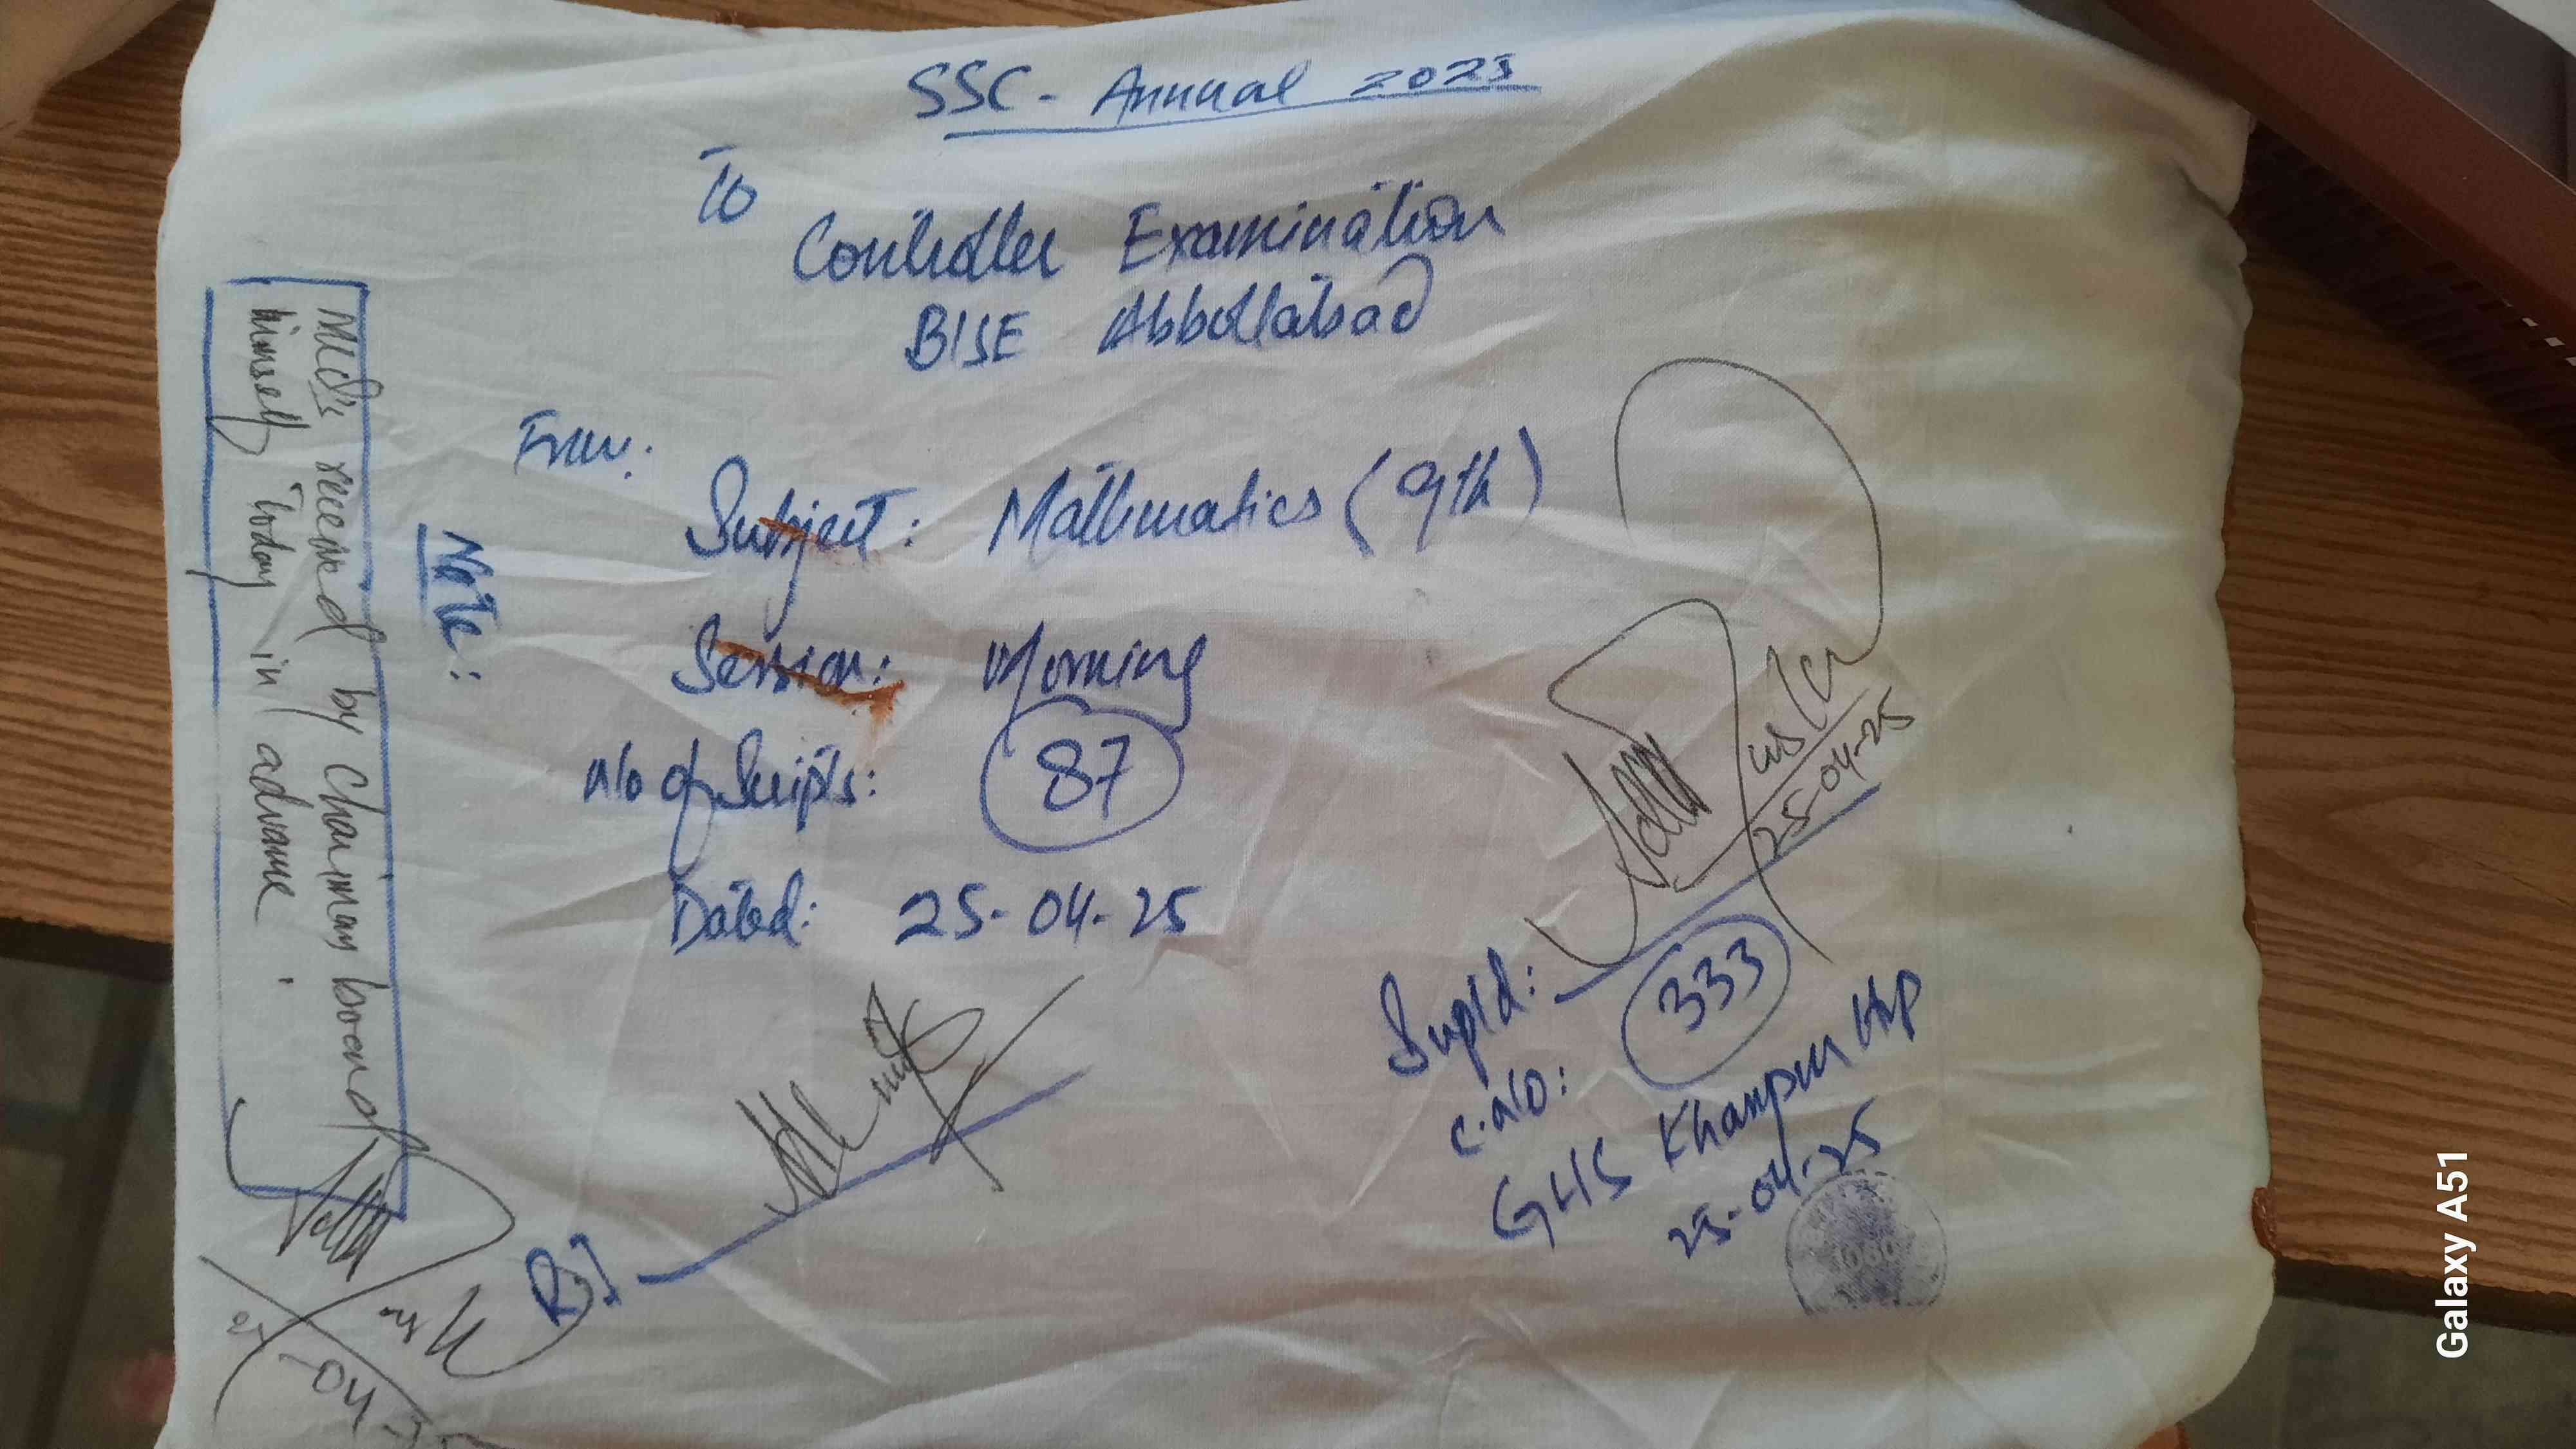 SSC - Annual 2025
To
Controller Examination
BISE Abbottabad
From:
Subject: Mathematics (9th)
Session: Morning
No of Scripts: 87
Dated: 25-04-25
R.I
Suptd:
25-04-25
C.No: 333
GHS Khanpur Hrp
25-04-25
Note:
received by Chairman board
himself today in advance.
Galaxy A51